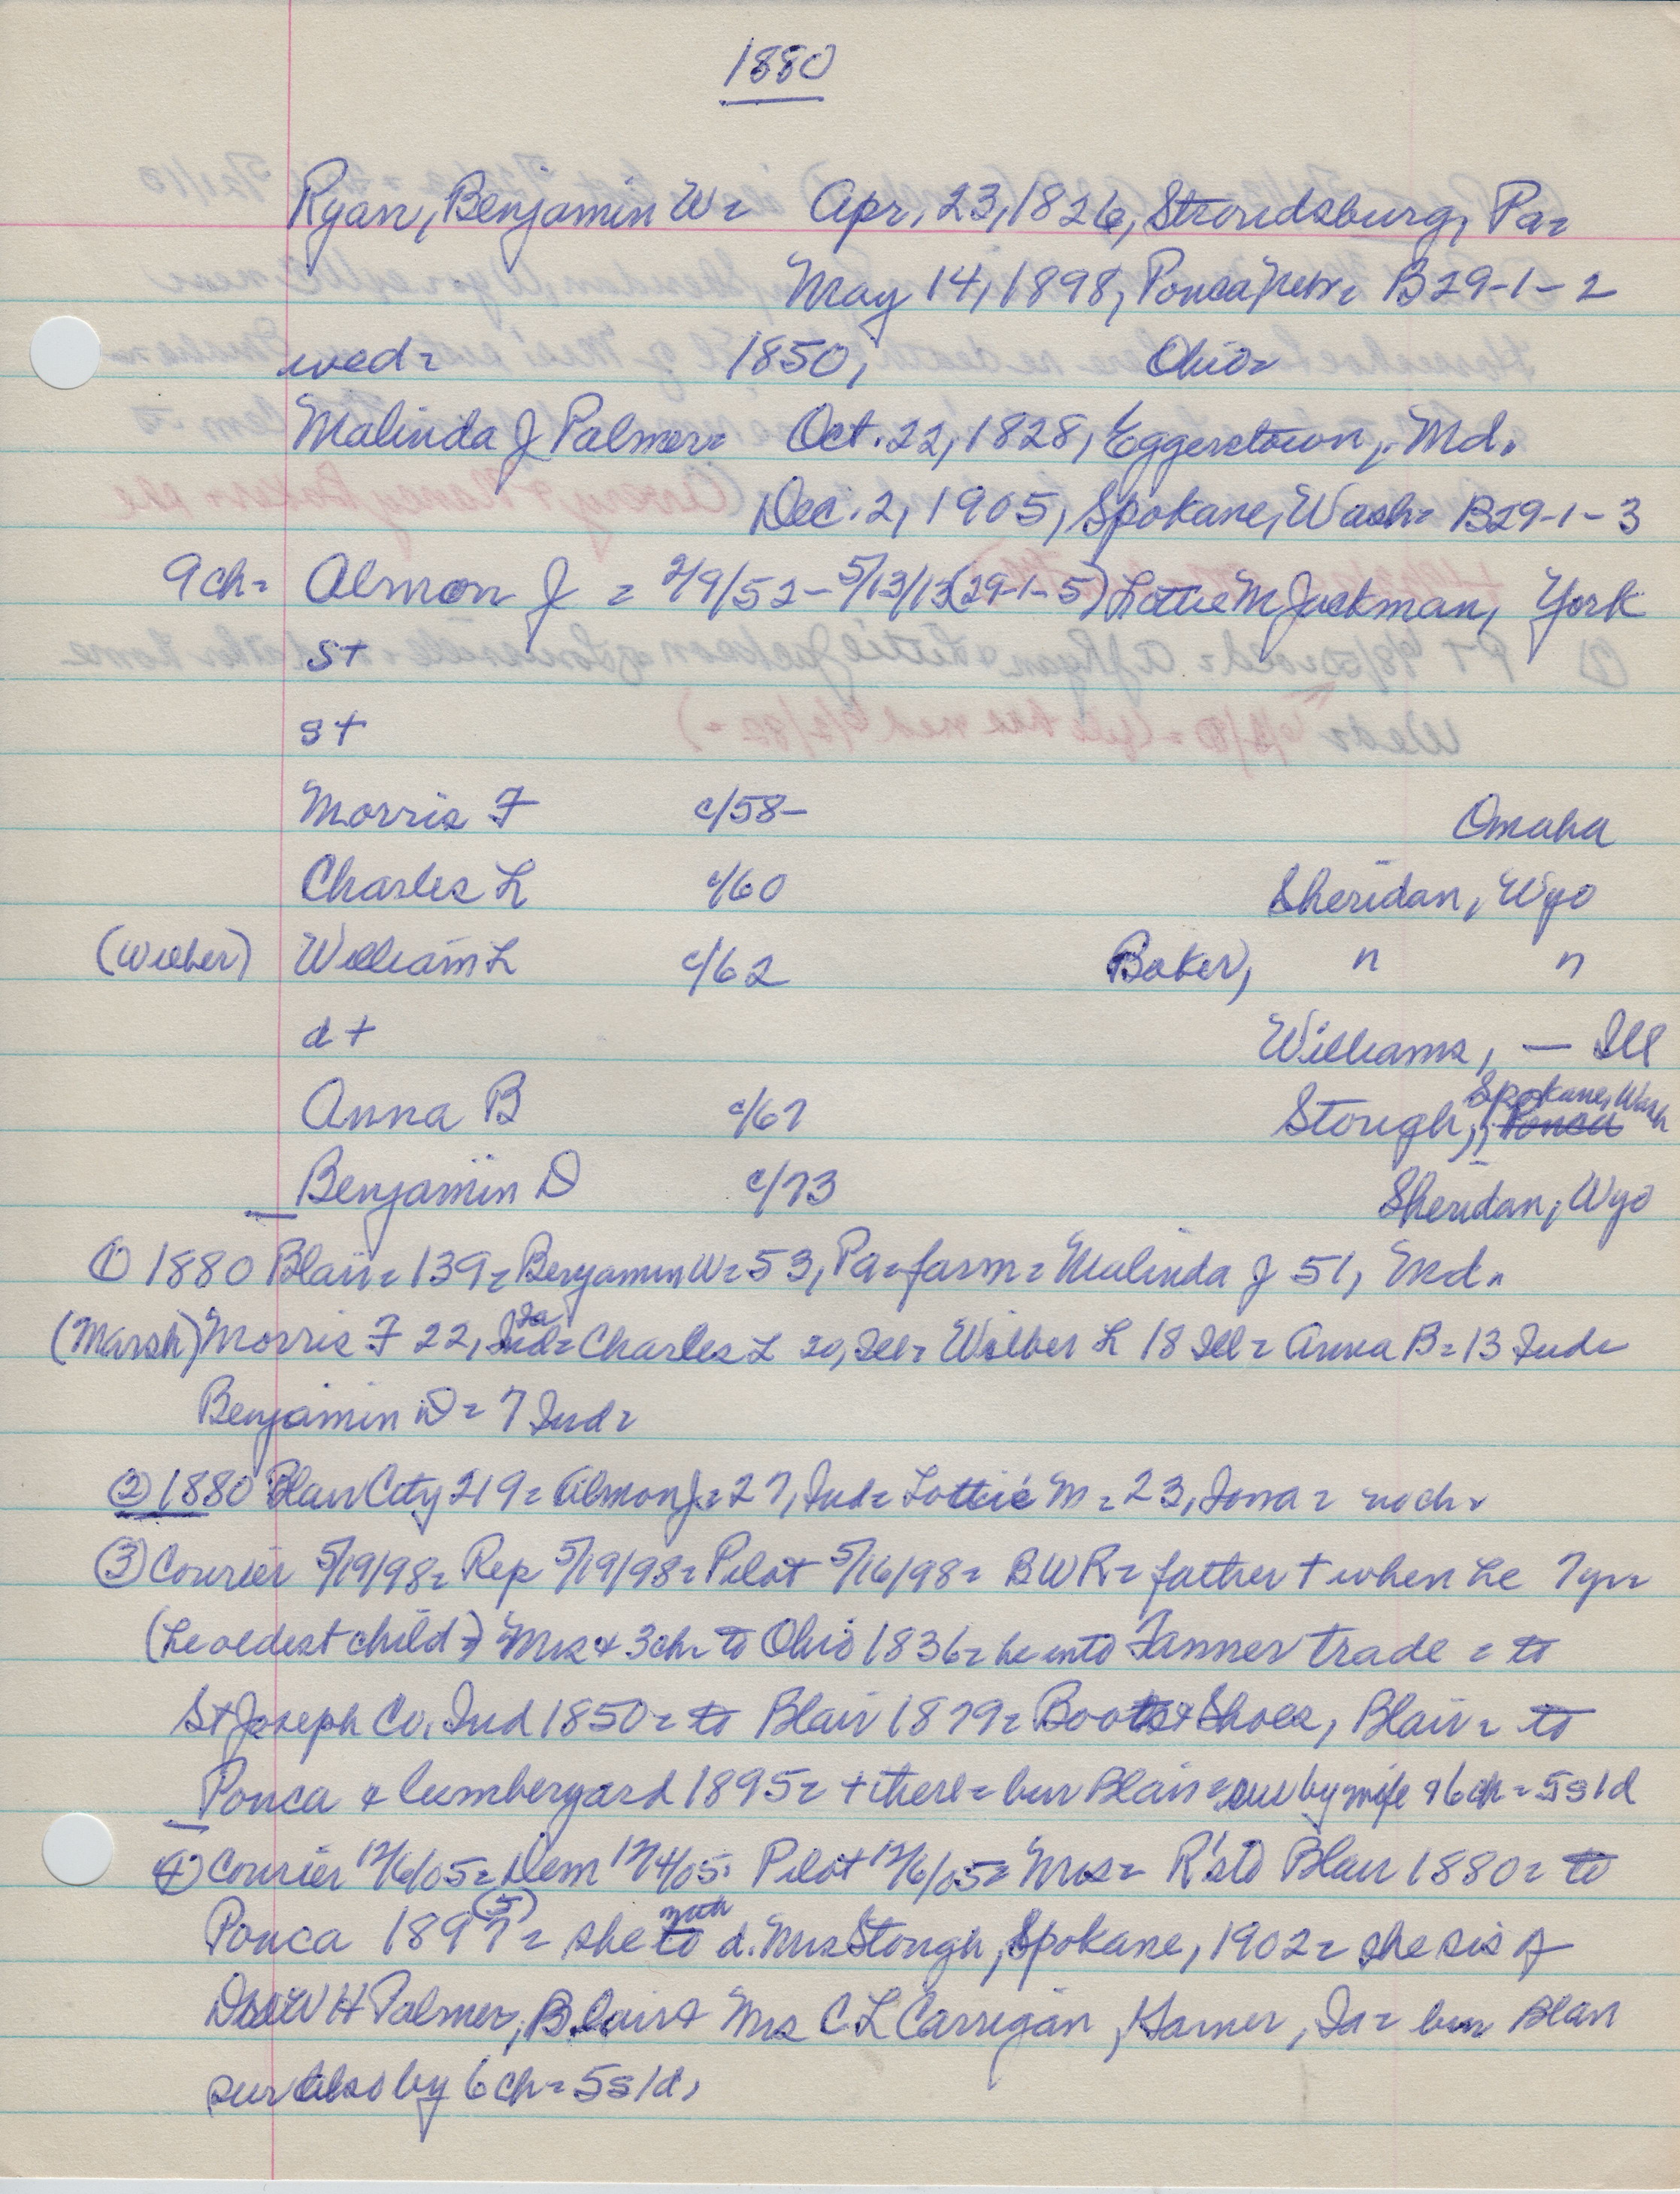 1880
Ryan, Benjamin W = Apr, 23, 1826, Stroudsburg, Pa =
May 14, 1898, Ponca, Nebr = B29-1-2
wed = 1850, Ohio =
Malinda J Palmer = Oct. 22, 1828, Eggerstown, Md.
Dec. 2, 1905, Spokane, Wash = B29-1-3
9 ch = Almon J = 2/9/52 - 5/13/13 (29-1-5) Lottie M Jackman, York
s +
s +
Morris F c/58 - Omaha
Charles L c/60 Sheridan, Wyo
(Wilber) William L c/62 Baker, " "
d + Williams, — Ill
Anna B c/67 Stough, Ponca Spokane, Wash
Benjamin D c/73 Sheridan, Wyo
① 1880 Blair = 139 = Benjamin W = 53, Pa = farm = Malinda J 51, Md =
(Marsh) Morris F 22, Ind Ia = Charles L 20, Ill = Wilber L 18 Ill = Anna B = 13 Ind =
Benjamin D = 7 Ind =
② 1880 Blair City 219 = Almon J = 27, Ind = Lottie M = 23, Iowa = no ch =
③ Courier 5/19/98 = Rep 5/19/98 = Pilot 5/16/98 = BWR = father + when he 7 yr =
(he oldest child) = Mrs & 3 ch = to Ohio 1836 = he into Tanner trade = to
St Joseph Co, Ind 1850 = to Blair 1879 = Boots & Shoes, Blair = to
Ponca & lumberyard 1895 = + there = bur Blair = sur by wife & 6 ch = 5s 1d
④ Courier 12/6/05 = Dem 12/4/05 = Pilot 12/6/05 = Mrs = R's to Blair 1880 = to
Ponca 1897 (5) = she to with d. Mrs Stough, Spokane, 1902 = she sis of
W H Palmer, Blair & Mrs C L Carrigan, Hamer, Ia = bur Blair
sur also by 6 ch = 5s 1d,